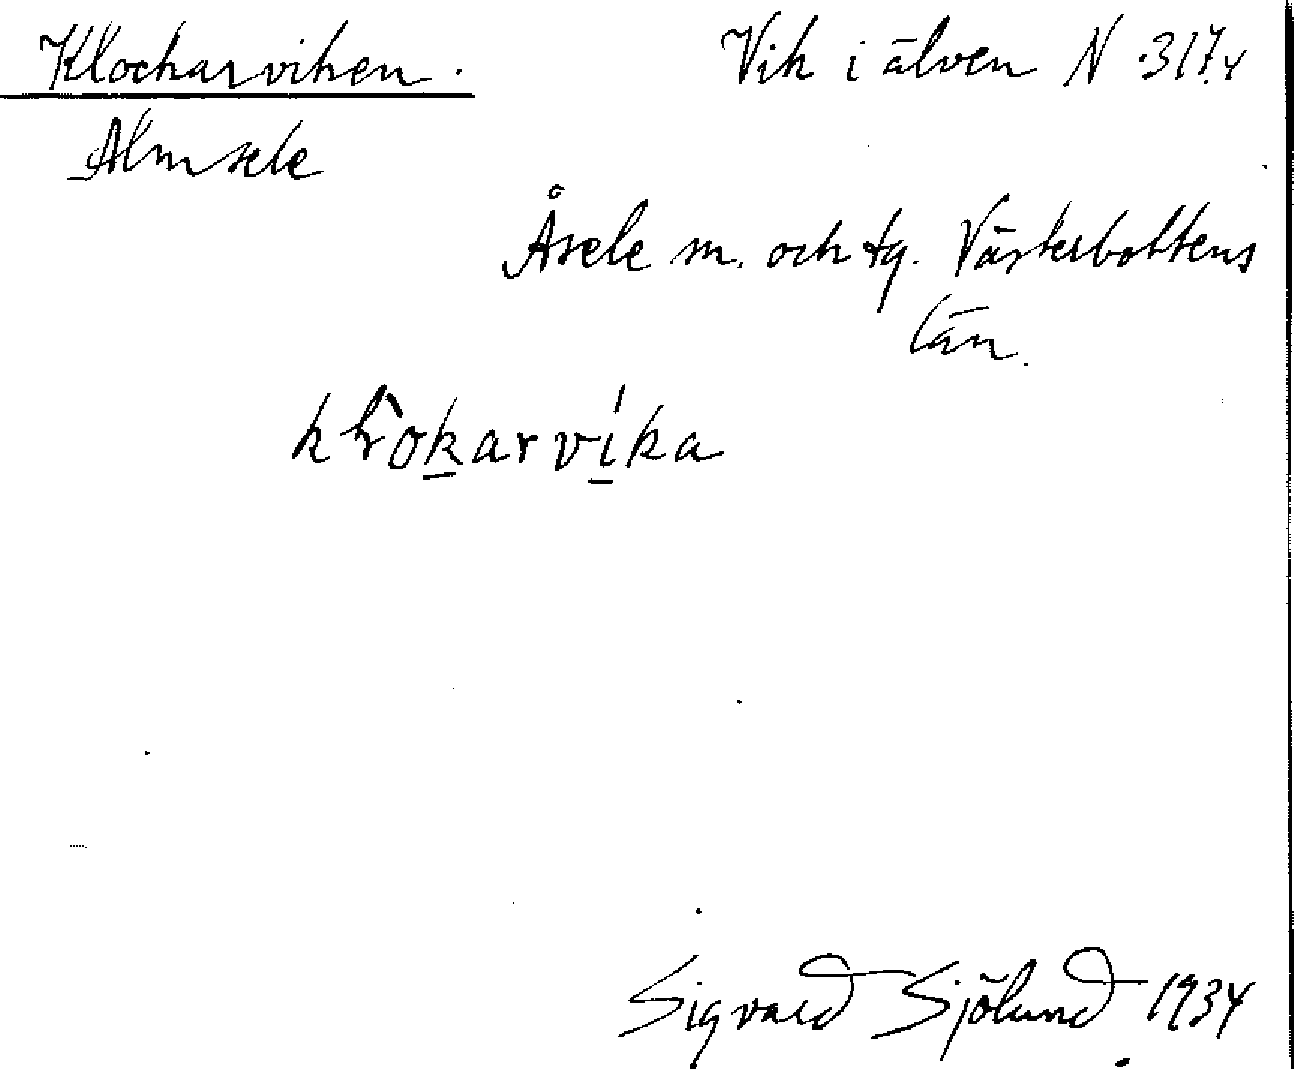 Klockarviken. Vik i älven N .317.4
Almsele
Åsele sn. och tg. Västerbottens
län.
Sigvard Sjölund 1934